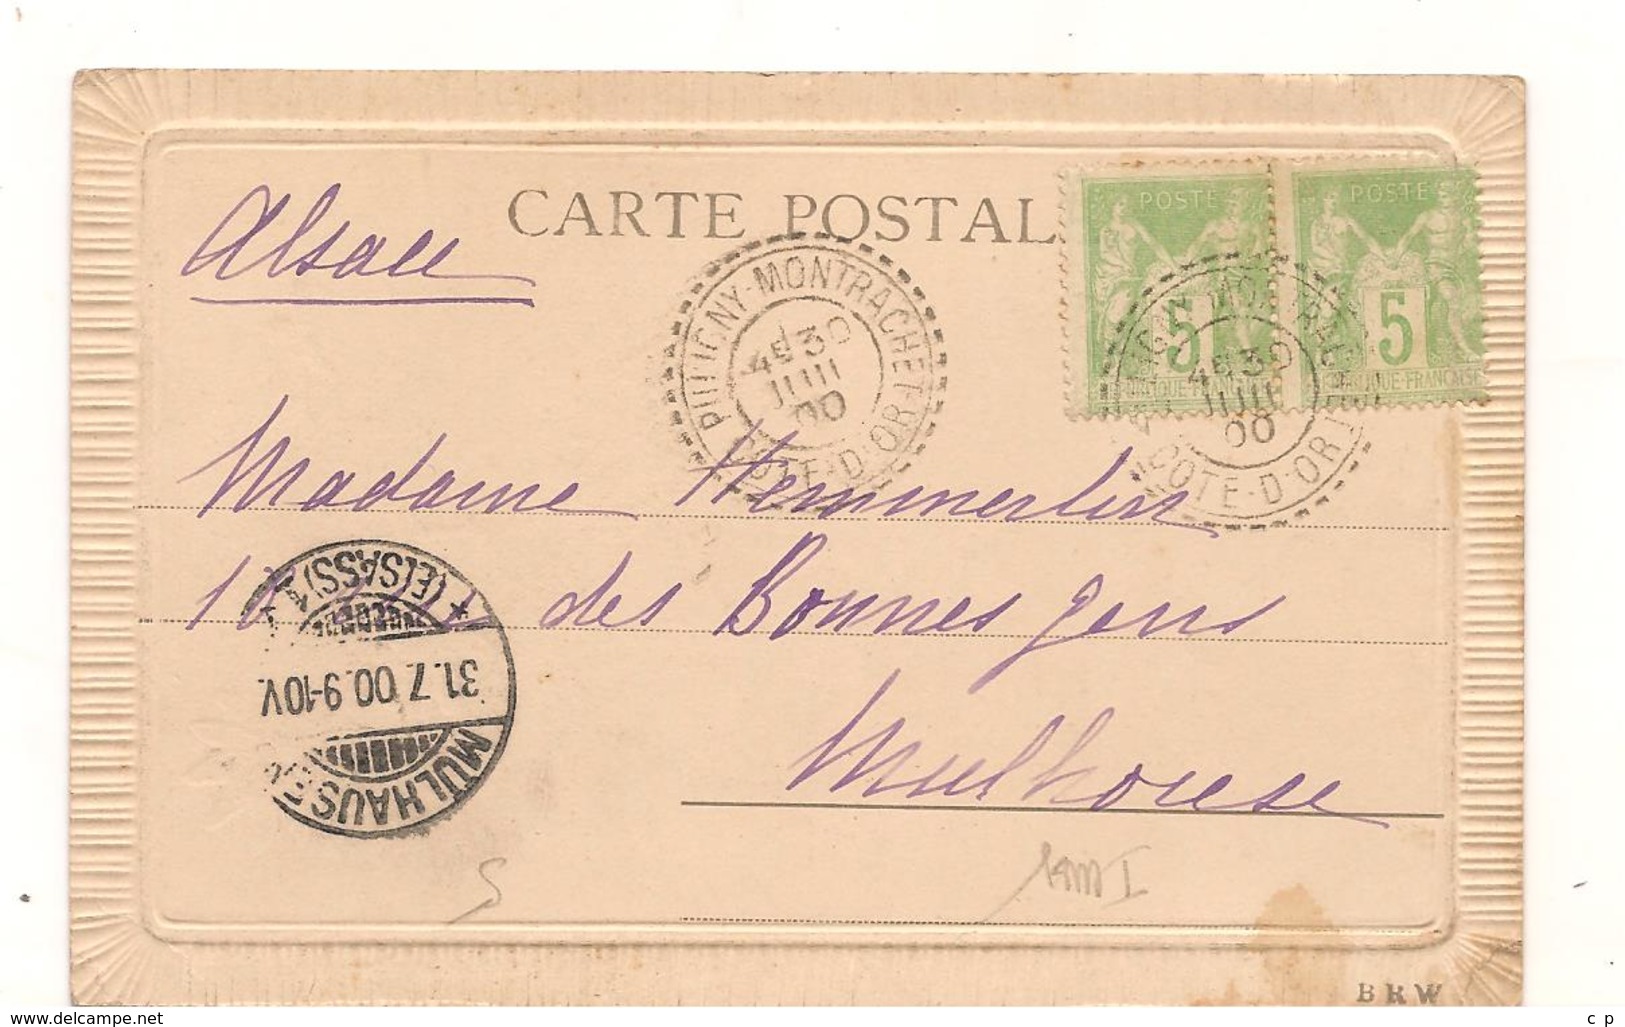 Alsace
CARTE POSTAL
POSTE
5
POSTE
5
PULIGNY-MONTRACHET
4E 30
JUIL
00
COTE-D'OR
MONTRACHET
4E 30
JUIL
00
COTE-D'OR
RÉPUBLIQUE-FRANÇAISE
Madame Hemmerlin
des Bonnes gens
Mulhouse
MÜLHAUSEN
31.7.00.9-10V.
(ELSASS) 1
BRW
www.delcampe.net
c p